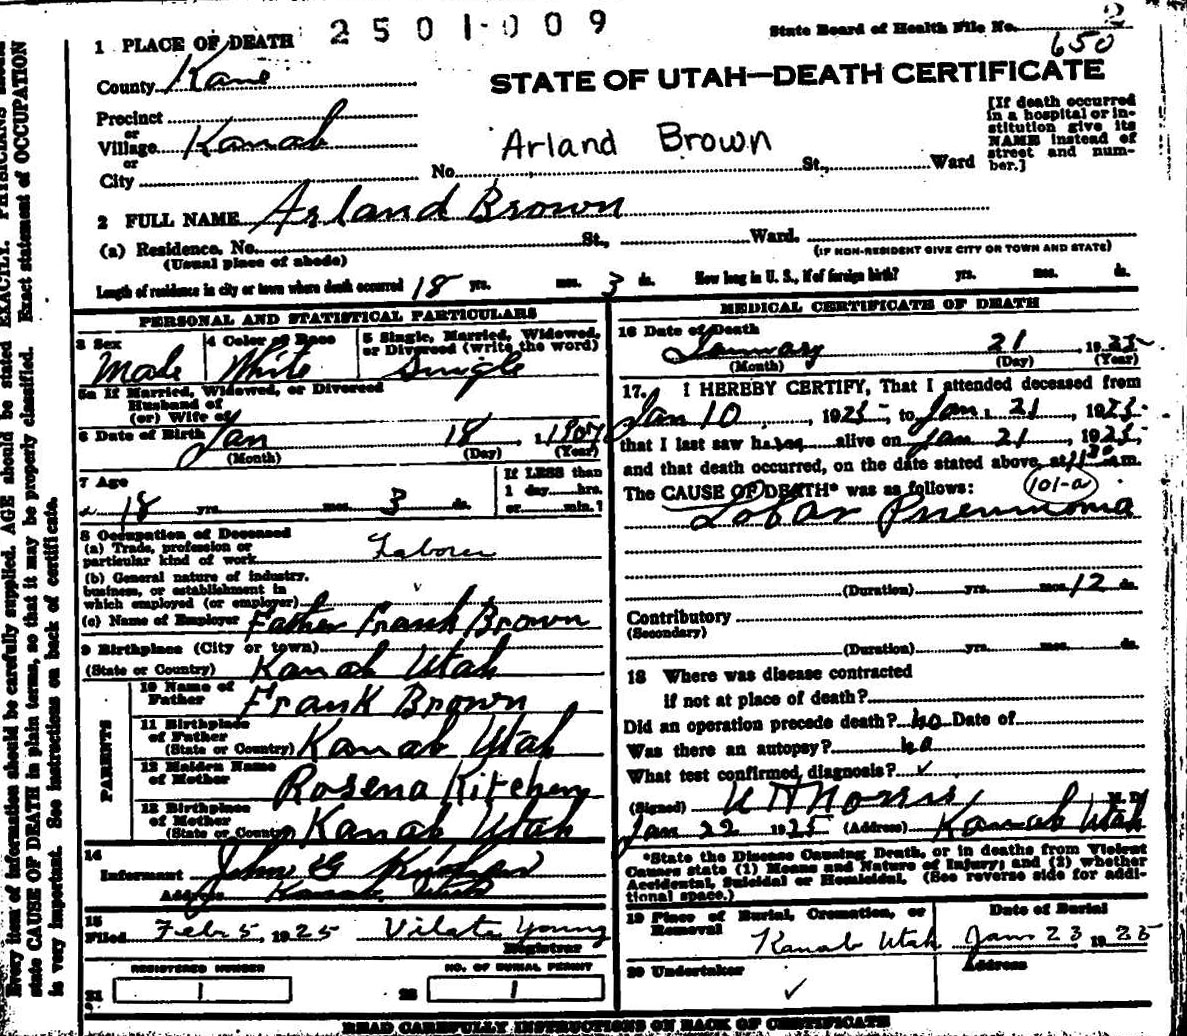 2501-009
State Board of Health File No. 2
650
1 PLACE OF DEATH
STATE OF UTAH—DEATH CERTIFICATE
County Kane
Precinct
or
Village Kanab
or
City
Arland Brown
No. St., Ward
[If death occurred
in a hospital or in-
stitution give its
NAME instead of
street and num-
ber.]
2 FULL NAME Arland Brown
(a) Residence. No. St., Ward.
(Usual place of abode)
(IF NON-RESIDENT GIVE CITY OR TOWN AND STATE)
Length of residence in city or town where death occurred 18 yrs. mos. 3 ds. How long in U. S., if of foreign birth? yrs. mos. ds.
PERSONAL AND STATISTICAL PARTICULARS
3 Sex
Male
4 Color or Race
White
5 Single, Married, Widowed,
or Divorced (write the word)
Single
5a If Married, Widowed, or Divorced
Husband of
(or) Wife of
6 Date of Birth Jan 18, 1907
(Month) (Day) (Year)
7 Age
18 yrs. mos. 3 ds.
If LESS than
1 day......hrs.
or......min.?
8 Occupation of Deceased
(a) Trade, profession or
particular kind of work Laborer
(b) General nature of industry,
business, or establishment in
which employed (or employer)
(c) Name of Employer Father Frank Brown
9 Birthplace (City or town)
(State or Country) Kanab Utah
PARENTS
10 Name of
Father Frank Brown
11 Birthplace
of Father
(State or Country) Kanab Utah
12 Maiden Name
of Mother Rosena Kitchen
13 Birthplace
of Mother
(State or Country) Kanab Utah
14
Informant John G
Address Kanab, Utah
15
Filed Feb 5, 1925 Vilate Young
Registrar
REGISTERED NUMBER
NO. OF BURIAL PERMIT
21 1
22 1
MEDICAL CERTIFICATE OF DEATH
16 Date of Death
January 21, 1925
(Month) (Day) (Year)
17. I HEREBY CERTIFY, That I attended deceased from
Jan 10, 1925, to Jan. 21, 1925
that I last saw h alive on Jan 21, 1925
and that death occurred, on the date stated above, at 1130 m.
The CAUSE OF DEATH* was as follows: 101-a
Lobar Pneumonia
(Duration) yrs. mos. 12 ds.
Contributory
(Secondary)
(Duration) yrs. mos. ds.
18 Where was disease contracted
if not at place of death?
Did an operation precede death? no Date of
Was there an autopsy? no
What test confirmed diagnosis? ✓
(Signed) Norris M. D.
Jan 22 1925 (Address) Kanab Utah
*State the Disease Causing Death, or in deaths from Violent
Causes state (1) Means and Nature of Injury; and (2) whether
Accidental, Suicidal or Homicidal. (See reverse side for addi-
tional space.)
19 Place of Burial, Cremation, or
Removal
Kanab Utah
Date of Burial
Jan 23 1925
20 Undertaker
✓
Address
READ CAREFULLY INSTRUCTIONS ON BACK OF CERTIFICATE
Every item of information should be carefully supplied. AGE should be stated EXACTLY. PHYSICIANS should
state CAUSE OF DEATH in plain terms, so that it may be properly classified. Exact statement of OCCUPATION
is very important. See instructions on back of certificate.